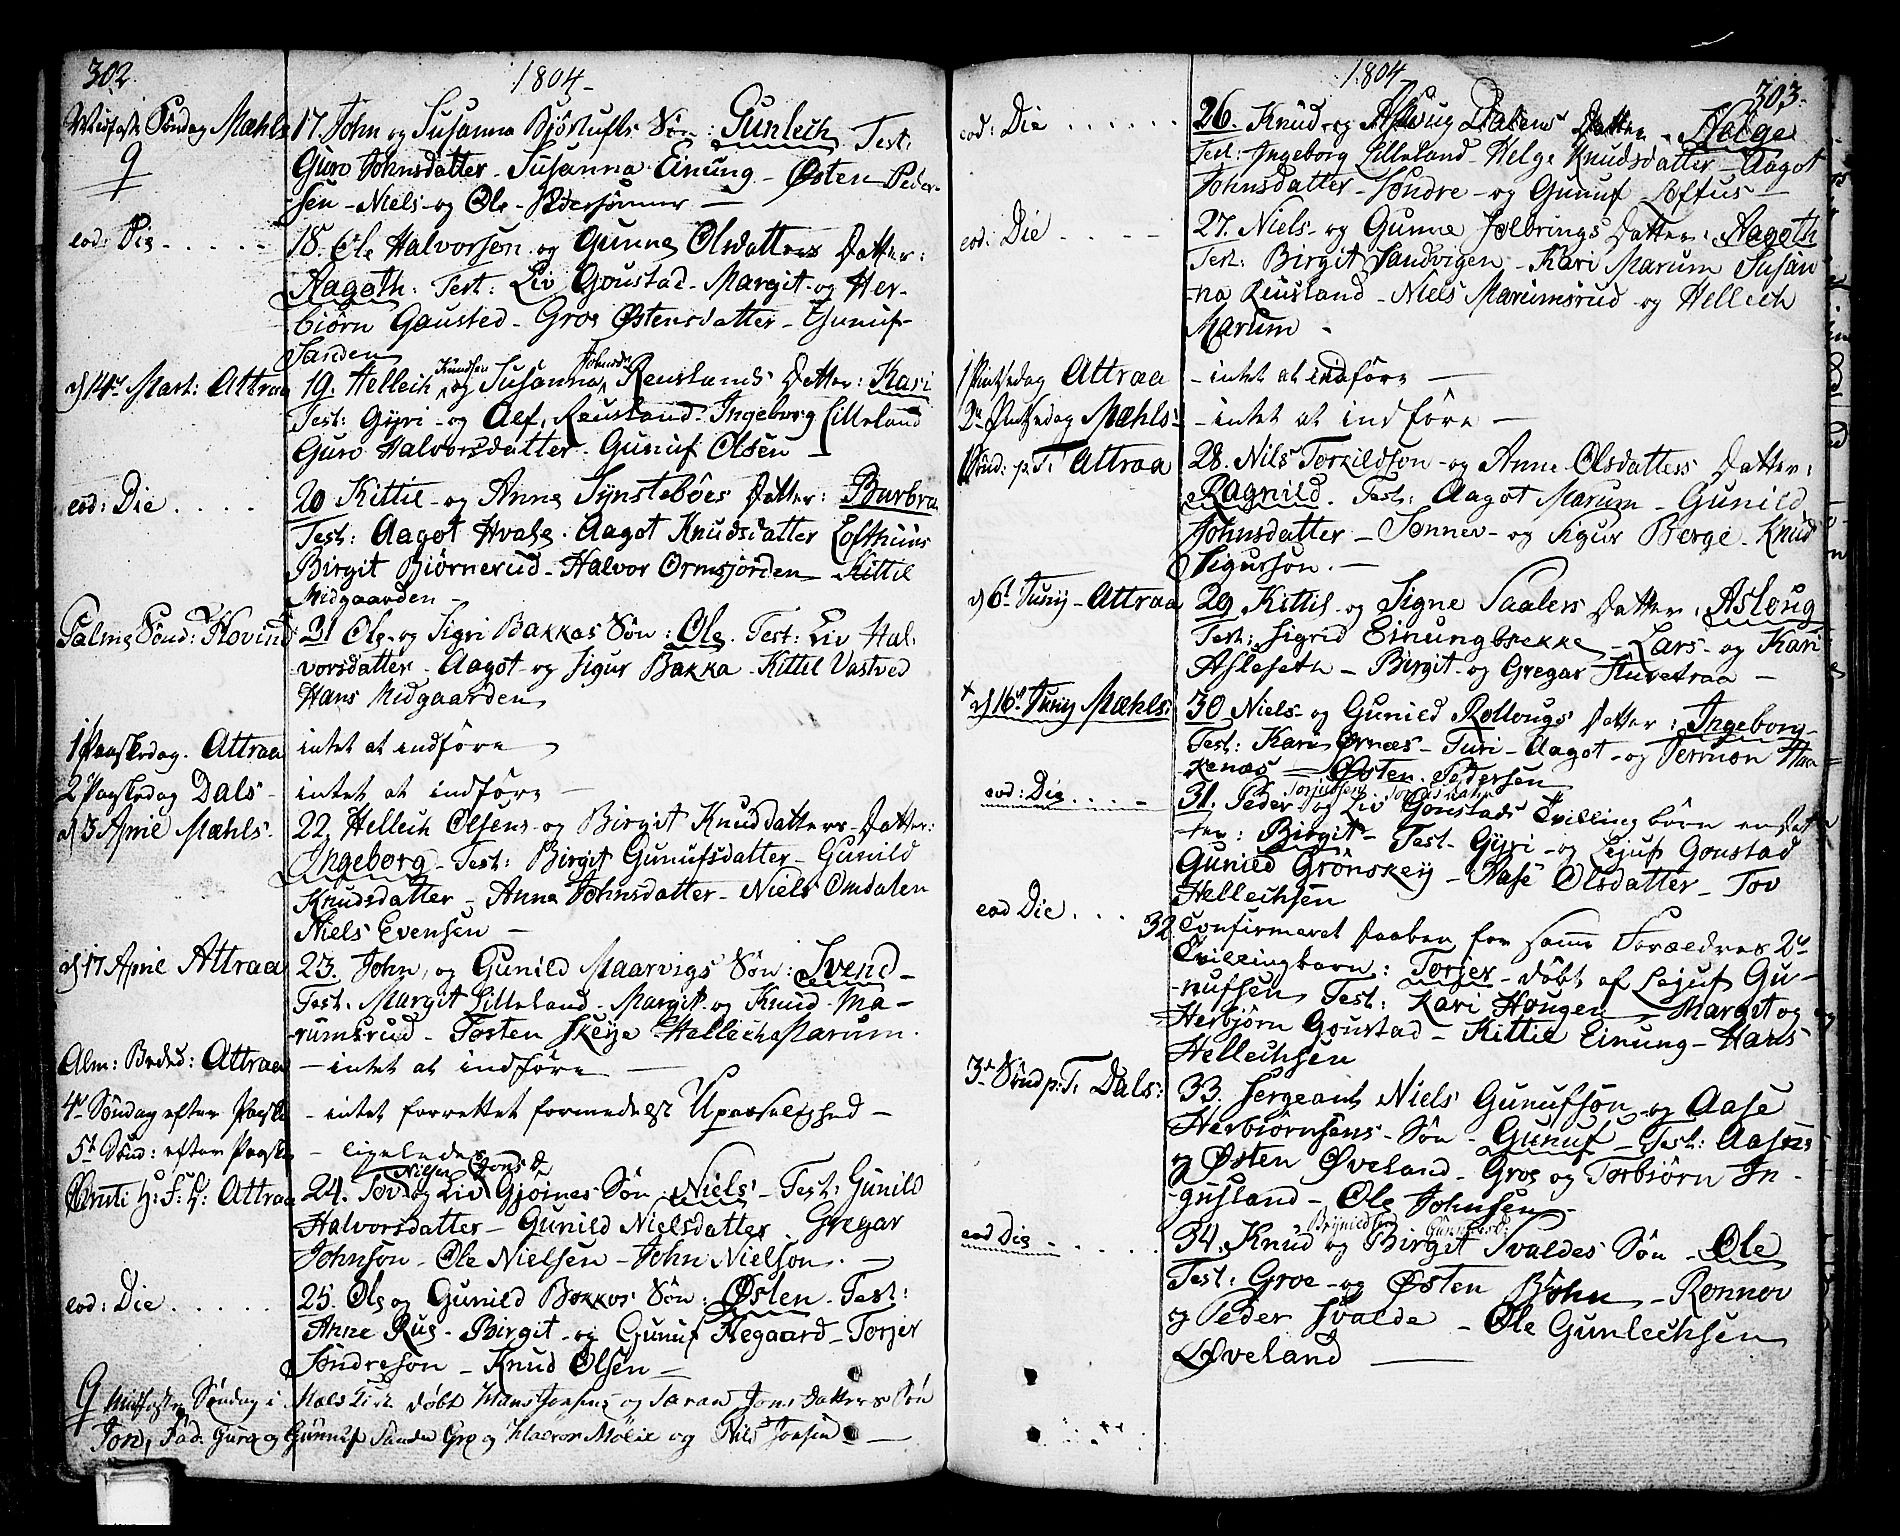 302.
1804.
Midfaste Söndag Mæhls 17. John og Susanna Bjørtufts Søn: Gunlech. Test:
Guro Johnsdatter - Susanna Einung - Østen Peder-
sen - Niels - og Ole - Pedersønner —
eod: Die ..... 18. Ole Halvorsen og Gunne Olsdatters Datter:
Aagoth: Test: Liv Goustad - Margit - og Her-
biørn Gausted - Groe Østensdatter - Gunuf
Sanden
d 14de Mart: Attraa 19. Hellech Knudsen og Susanna Johnsdr Reuslands Datter: Kari
Test: Gyri - og Alf, Reusland - Ingeborg Lilleland
Guro Halvorsdatter. Gunuf Olsen —
eod: Die .... 20 Kittil - og Anne Synstebøes Datter: Barbra
Test: Aagot Hvale. Aagot Knudsdatter Lofthuus
Birgit Biørnerud - Halvor Ormsjorden - Kittil
Midgaarden -
Palme Sønd: Hovind 21 Ole - og Sigri Bakkas Søn: Ole. Test: Liv Hal-
vorsdatter - Aagot - og Sigur Bakka - Kittil Vastved
Hans Midgaarden
1 Paaskedag. Attraa intet at indföre
2 Paaskedag Dals - intet at indföre —
d 3 April Mæhls. 22. Hellech Olsens - og Birgit Knudsdatters Datter:
Ingeborg - Test: Birgit Gunufsdatter - Gunild
Knudsdatter - Anne Johnsdatter - Niels Omdalen
Niels Evensen —
d 17 April Attraa 23. John, og Gunild Maarvigs Søn: Svend -
Test: Margit Lilleland - Margit - og Knud - Ma-
rumsrud - Tosten Skeye - Hellech Marum.
Alm: Beded: Attraa — intet at indföre —
4de Söndag efter Paaske - intet forrettet formedelst Upasselighed —
5te Sönd: efter Paaske - ligeledes
Christi H: F: D: Attraa 24. Tov Nielsen og Liv Jonsd Gjoines Søn: Niels - Test: Gunild
Halvorsdatter - Gunild Nielsdatter Gregar
Johnson - Ole Nielsen - John Nielson. —
eod: Die ..... 25. Ole og Gunild Bakkas Søn: Østen - Test:
Anne Rue - Birgit - og Gunuf Hegaard - Torjer
Søndreson - Knud Olsen —
Midfaste Søndag i Mæls Kirke döbt Hans Jonsens og Saran Jons Datters Søn
Jon, Fad. Guro og Gunnuf Sande Gro og Halvor Mölie og Nils Jonsen —
1804
303.
eod: Die ...... 26. Knud og Aslaug Dalens Datter - Helge
Test: Ingeborg Lilleland - Helge Knudsdatter - Aagot
Johnsdatter - Søndre - og Gunuf Loftus —
eod: Die .. . - - 27. Niels - og Gunne Jolbrings Datter: Aagoth
Test: Birgit Sandvigen - Kari Marum Susan
na Reusland - Niels Marumsrud - og Hellech
Marum -
1 Pintsedag Attraa - intet at indföre —
2den Pintsedag Mæhls - intet at indföre —
1 Sönd: p. T. Attraa 28. Nils Torkildson - og Anne Olsdatters Datter:
Ragnild. Test: Aagot Marum - Gunild
Johnsdatter - Sønnev - og Sigur Berge - Knud
Sigurson. —
d 6te Junij - Attraa 29 Kittil - og Signe Saalers Datter: Asloug
Test: Sigrid Einungbrekke - Lars - og Kari
Asleseth - Birgit - og Gregar Fluretraa —
d 16de Junij Mæhls: 30 Niels - og Gunild Rollougs Datter: Ingeborg -
Test: Kari Ørnæs - Turi - Aagot - og Jermon Haa
kenæs — Østen Pedersen
eod: Die .... - 31. Peder og Liv Goustads Tvilling börn en Dat
ter: Birgit - Test. Gyri - og Lejuf Goustad
Gunild Grønskey - Aase Olsdatter - Tov
Hellechsen
eod Die .... 32. Confirmeret Daaben for samme Forældres 2de
Tvillingbarn: Torjer - döbt af Lejuf Gu-
nufsen Test: Kari Hougen - Margit og
Herbjörn Goustad - Kittil Einung - Hans
Hellechsen
3de Sönd p: T: Dals: 33. Sergeant Niels Gunufsøn - og Aase
Herbiørnsens - Søn - Gunuf - Test: Aasne
og Østen Øveland - Groe og Torbiørn In-
gusland - Ole Johnsen -
eod Die - .... 34. Knud Brynildsen og Birgit Gunufsd: Svaldes Søn - Ole
Test: Groe - og Østen Bøhn - Rønnov
og Peder Svalde - Ole Gunlechsen
Øveland —